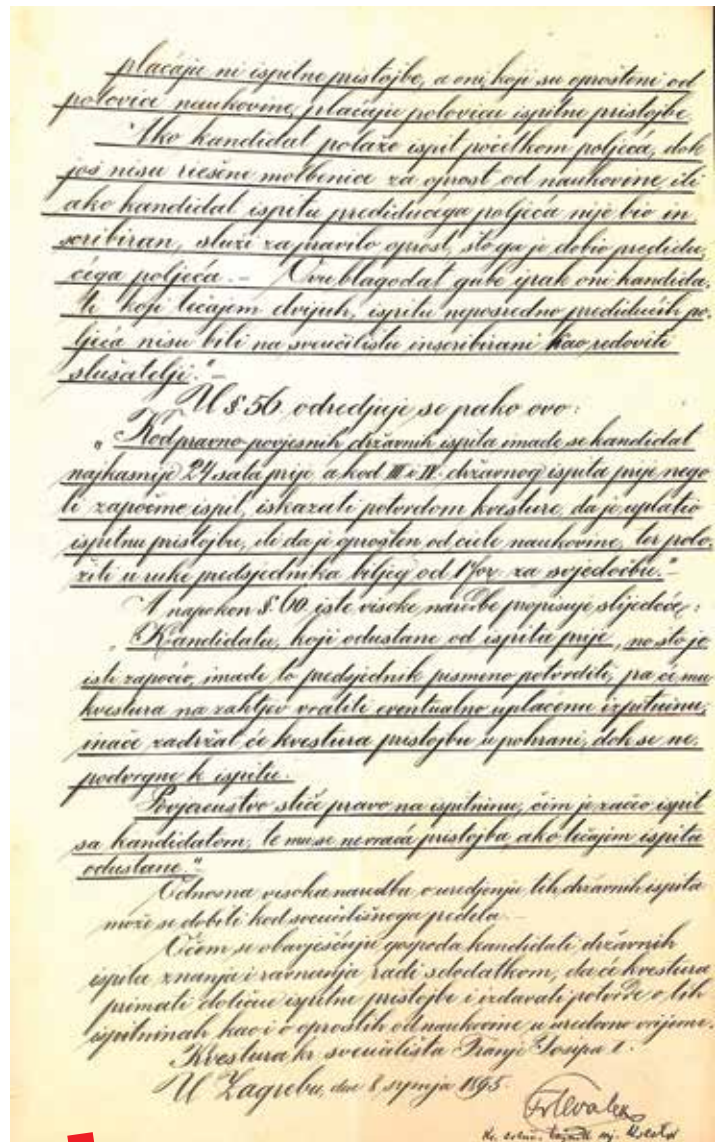 plaćaju ni ispitne pristojbe, a oni, koji su oprošteni od
polovice naukovine, plaćaju polovicu ispitne pristojbe.
Ako kandidat polaže ispit početkom poljeća, dok
još nisu riešene molbenice za oprost od naukovine ili
ako kandidat ispitu predidućega poljeća nije bio in
scribiran, služi za pravilo oprost, što ga je dobio predidu„
ćega poljeća. – Ovu blagodat gube ipak oni kandida„
ti koji tečajem dvijuh, ispitu neposredno predidućih po„
ljeća nisu bili na sveučilištu inscribirani kao redoviti
slušatelji." –
U § 56. odredjuje se pako ovo:
„Kod pravno-povjesnih državnih ispita imade se kandidat
najkasnije 24 sata prije a kod III i IV. državnog ispita prije nego
li započme ispit, iskazati potvrdom kvesture, da je uplatio
ispitnu pristojbu, ili da je oprošten od ciele naukovine, ter polo„
žiti u ruke predsjednika biljeg od 1 for. za svjedočbu." –
A napokon §. 60. iste visoke naredbe propisuje slijedeće:
„Kandidatu, koji odustane od ispita prije, no što je
isti započeo, imade to predsjednik pismeno potvrditi, pa će mu
kvestura na zahtjev vratiti eventualno uplaćenu izpitninu,
inače zadržat će kvestura pristojbu u pohrani, dok se ne„
podvrgne k ispitu.
Povjerenstvo stiče pravo na ispitninu, čim je začeo ispit
sa kandidatom, te mu se nevraća pristojba ako tečajem ispita
odustane." –
Odnosna visoka naredba o uredjenju tih državnih ispita
može se dobiti kod sveučilišnoga pedela. –
Čim se obavješćuju gospoda kandidati državnih
ispita znanja i ravnanja radi s dodatkom, da će kvestura
primati dotične ispitne pristojbe i izdavati potvrde o tih
ispitninah kao i o oprostih od naukovine u uredovno vrijeme.
Kvestura kr. sveučilišta Franje Josipa I.
U Zagrebu, dne 8. srpnja 1895.